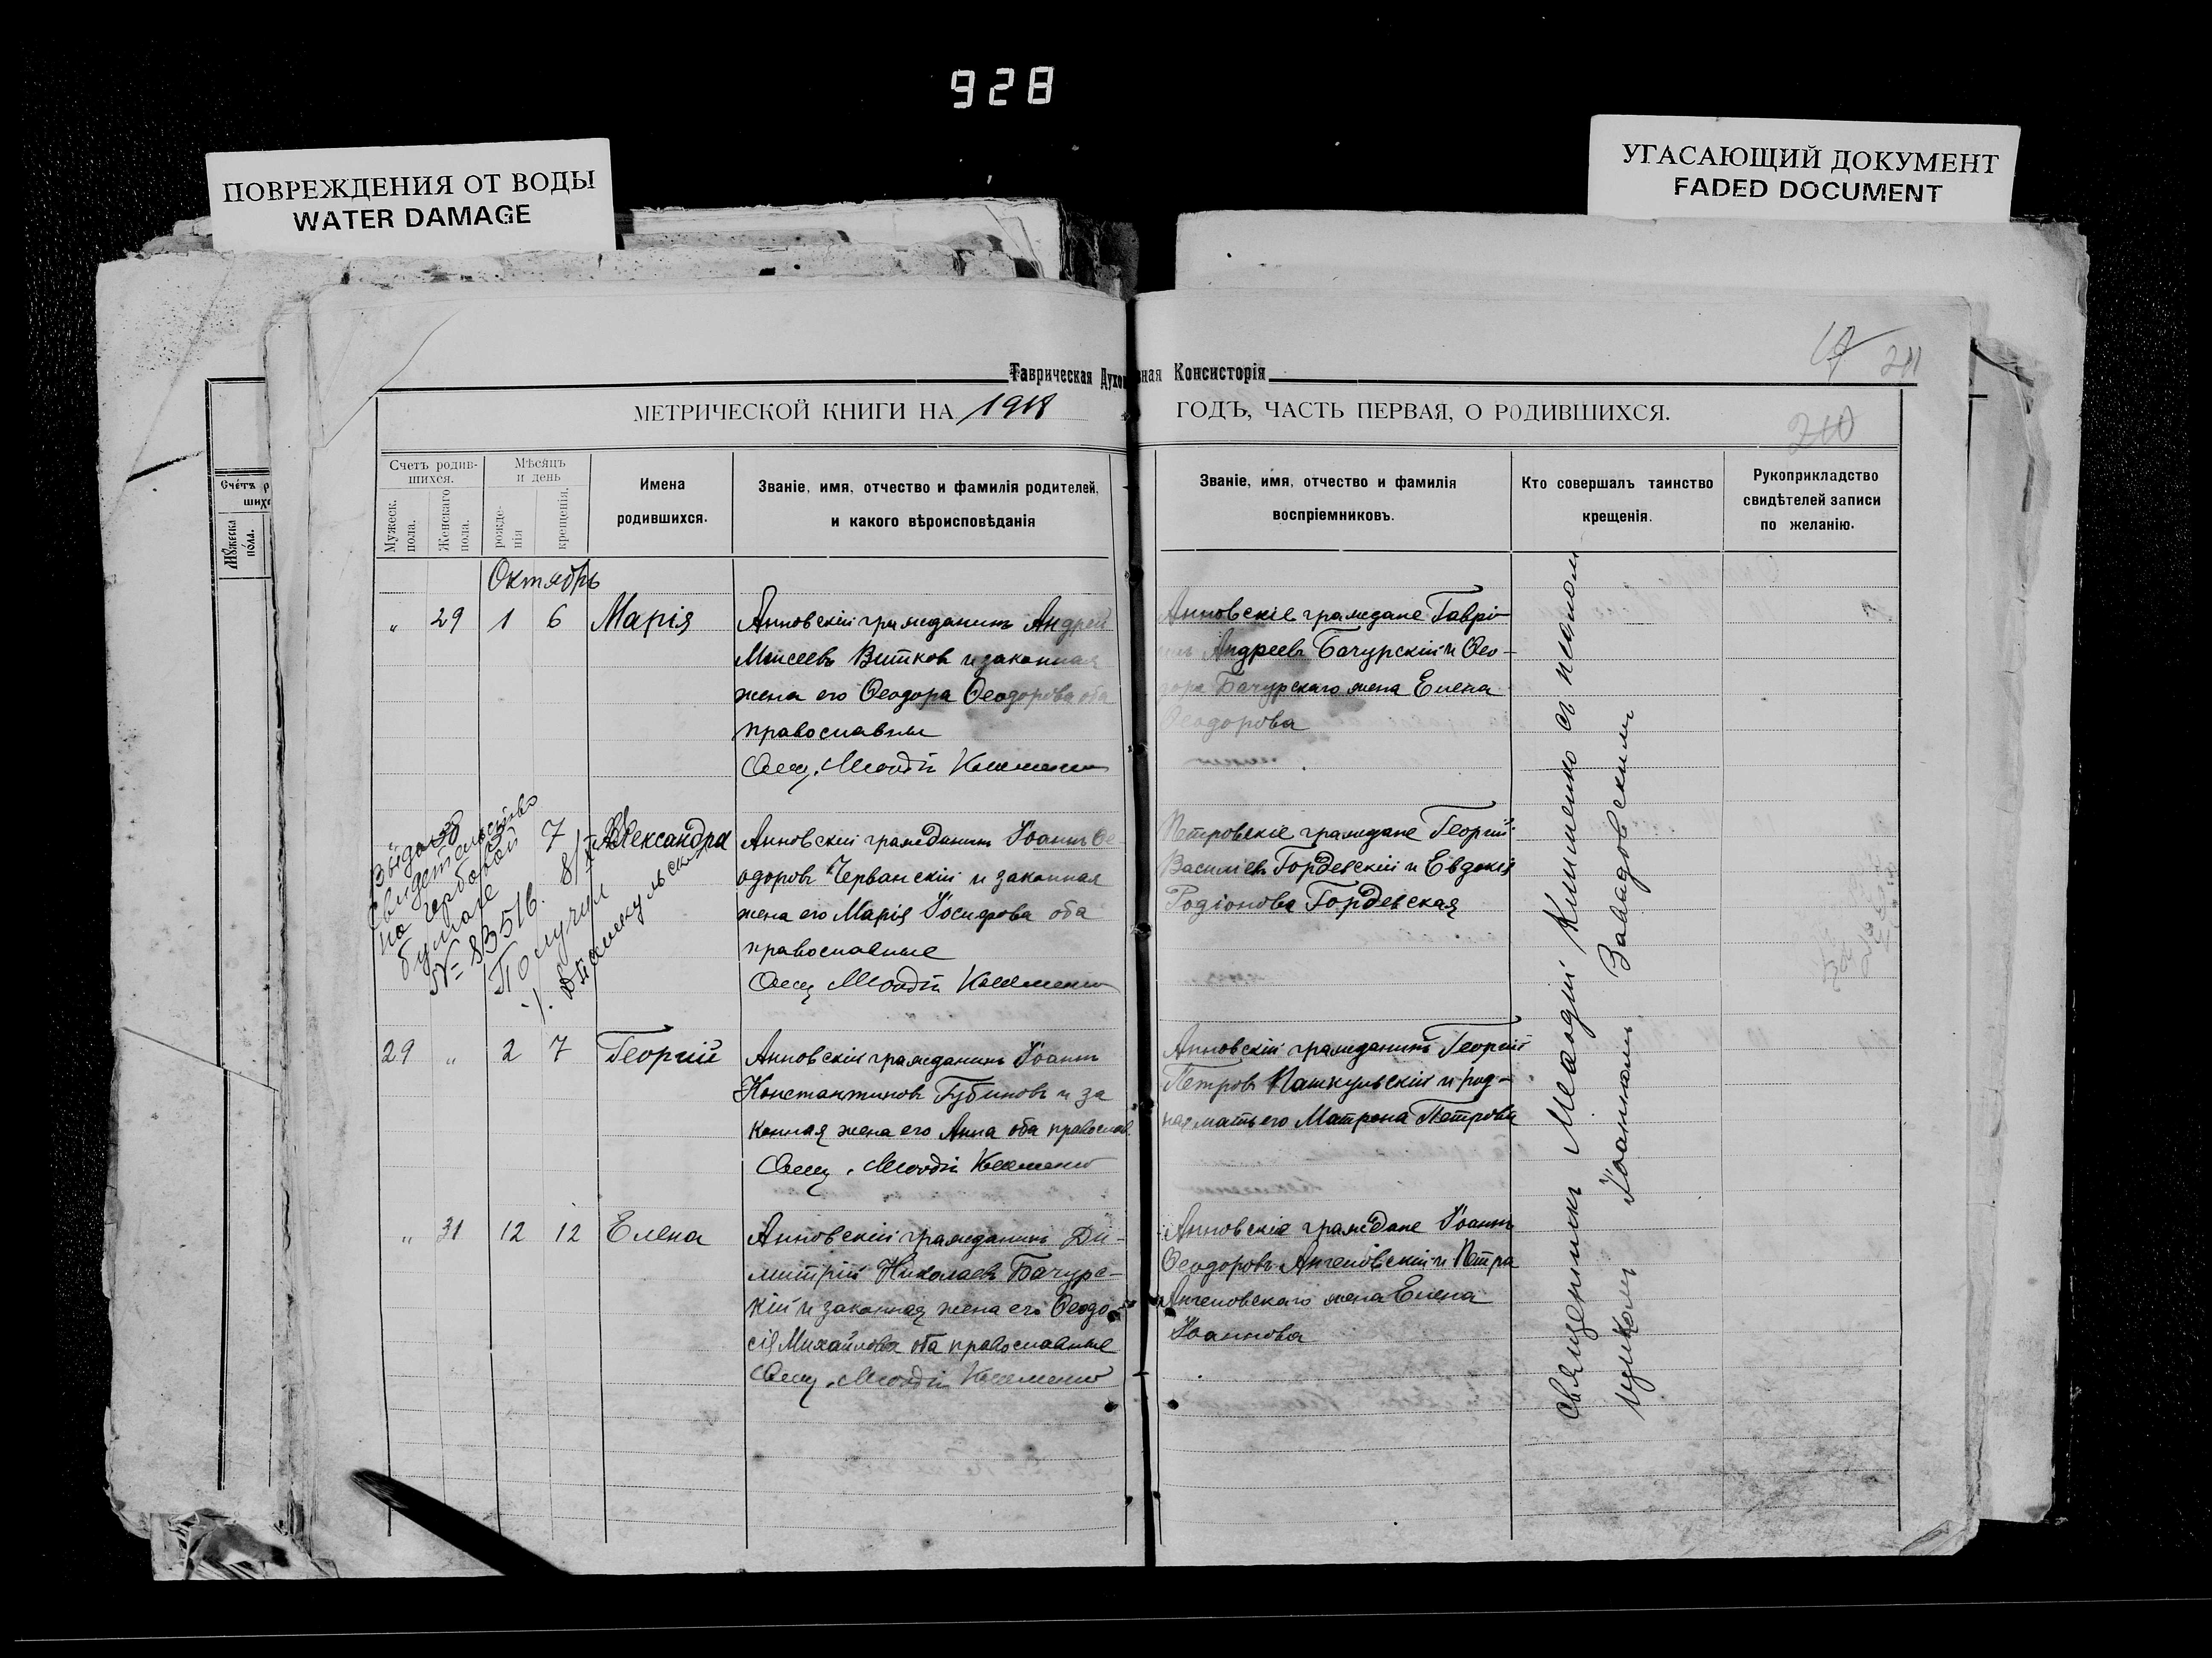 928
ПОВРЕЖДЕНИЯ ОТ ВОДЫ
WATER DAMAGE
УГАСАЮЩИЙ ДОКУМЕНТ
FADED DOCUMENT
Таврическая Духовная Консисторія
211
210
МЕТРИЧЕСКОЙ КНИГИ НА 1918 ГОДЪ, ЧАСТЬ ПЕРВАЯ, О РОДИВШИХСЯ.
Счетъ родив-
шихся.
Мужеск.
пола.
Женскаго
пола.
Мѣсяцъ
и день
рожде-
нія
крещенія.
Имена
родившихся.
Званіе, имя, отчество и фамилія родителей,
и какого вѣроисповѣданія
Званіе, имя, отчество и фамилія
воспріемниковъ.
Кто совершалъ таинство
крещенія.
Рукоприкладство
свидѣтелей записи
по желанію.
Октябрь
" 29 1 6 Марія
Анновскій гражданинъ Андрей
Моисеевъ Витков и законная
жена его Ѳеодора Ѳеодорова оба
православные
Свящ. Меѳодій Клименко
Анновскіе граждане Гаврі-
илъ Андреевъ Бачурскій и Ѳео-
дора Бачурскаго жена Елена
Ѳеодорова
Выдано
свидетельство
на гербовой
бумаге
№ 83516.
Получил
7 Александра
Анновскій гражданинъ Іоаннъ Ѳе-
одоровъ Черванскій и законная
жена его Марія Іосифова оба
православные
Свящ Меѳодій Клименко
Петровскіе граждане Георгій
Василіевъ Гордевскій и Евдокія
Родіонова Гордевская
29 " 2 7 Георгій
Анновскій гражданинъ Іоаннъ
Константиновъ Губиновъ и за
конная жена его Анна оба православ.
Свящ. Меѳодій Клименко
Анновскій гражданинъ Георгій
Петровъ Пашкульскій и род-
ная мать его Матрона Петрова
" 31 12 12 Елена
Анновскій гражданинъ Ди-
митрій Николаевъ Бачурс-
кій и законная жена его Ѳеодо-
сія Михайлова оба православные
Свящ. Меѳодій Клименко
Анновскіе граждане Іоаннъ
Ѳеодоровъ Ангеловскій и Петра
Ангеловскаго жена Елена
Іоаннова
Священникъ Меѳодій Клименко съ псалом
щикомъ Іоанномъ Завадовскимъ
Счетъ р
шихс
Мужеска
пола.